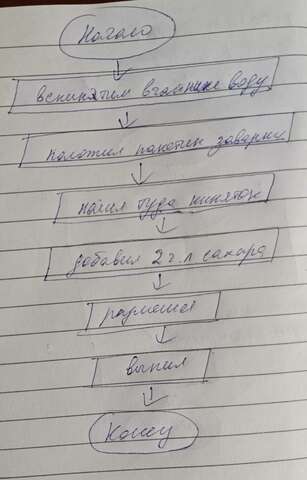 Начало
вскипятил в чайнике воду
положил пакетик заварки
налил туда кипяток
добавил 2 ч.л сахара
размешал
выпил
Конец